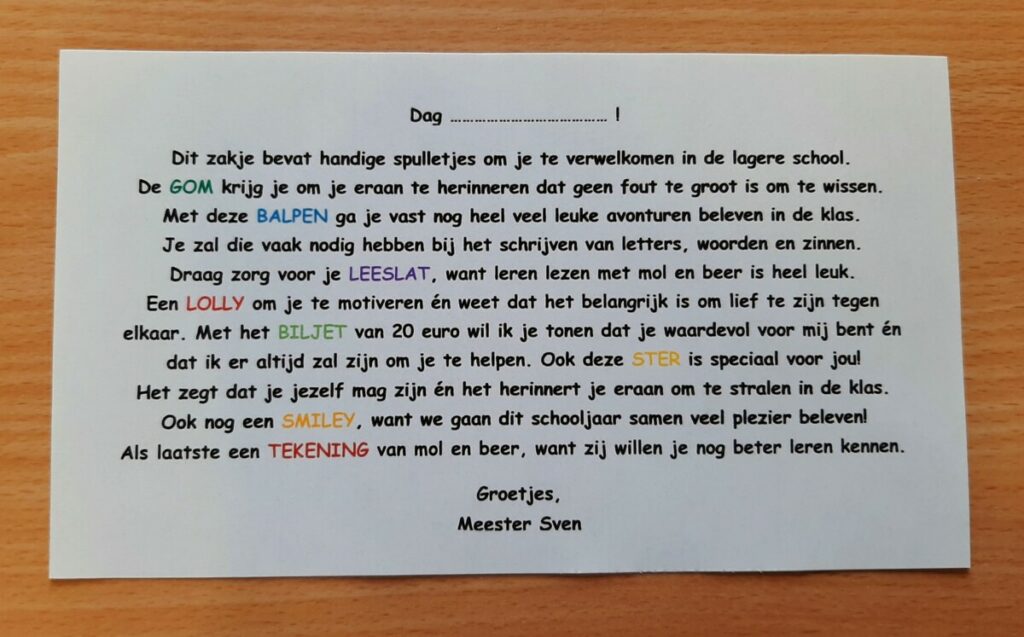 Dag ........................................ !
Dit zakje bevat handige spulletjes om je te verwelkomen in de lagere school.
De GOM krijg je om je eraan te herinneren dat geen fout te groot is om te wissen.
Met deze BALPEN ga je vast nog heel veel leuke avonturen beleven in de klas.
Je zal die vaak nodig hebben bij het schrijven van letters, woorden en zinnen.
Draag zorg voor je LEESLAT, want leren lezen met mol en beer is heel leuk.
Een LOLLY om je te motiveren én weet dat het belangrijk is om lief te zijn tegen
elkaar. Met het BILJET van 20 euro wil ik je tonen dat je waardevol voor mij bent én
dat ik er altijd zal zijn om je te helpen. Ook deze STER is speciaal voor jou!
Het zegt dat je jezelf mag zijn én het herinnert je eraan om te stralen in de klas.
Ook nog een SMILEY, want we gaan dit schooljaar samen veel plezier beleven!
Als laatste een TEKENING van mol en beer, want zij willen je nog beter leren kennen.
Groetjes,
Meester Sven